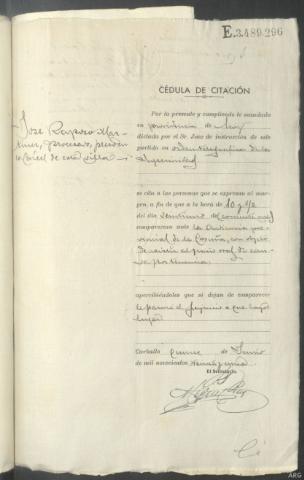 E.3.489.296
CÉDULA DE CITACIÓN
Por la presente y cumpliendo lo mandado
en providencia de hoy
dictada por el Sr. Juez de instrucción de este
partido en orden de la
Superioridad
José Mar-
tínez, procesado,
cárcel de esta villa
se cita a las personas que se expresan al mar-
gen, a fin de que a la hora de 10 y 1/2
del día veintiuno de
comparezcan ante la Audiencia pro-
vincial de la Coruña, con objeto
de asistir al juicio oral de cau-
sa por
apercibiéndoles que si dejan de comparecer
le parará el perjuicio a que haya
lugar
Carballo quince de Junio
de mil novecientos
El Secretario